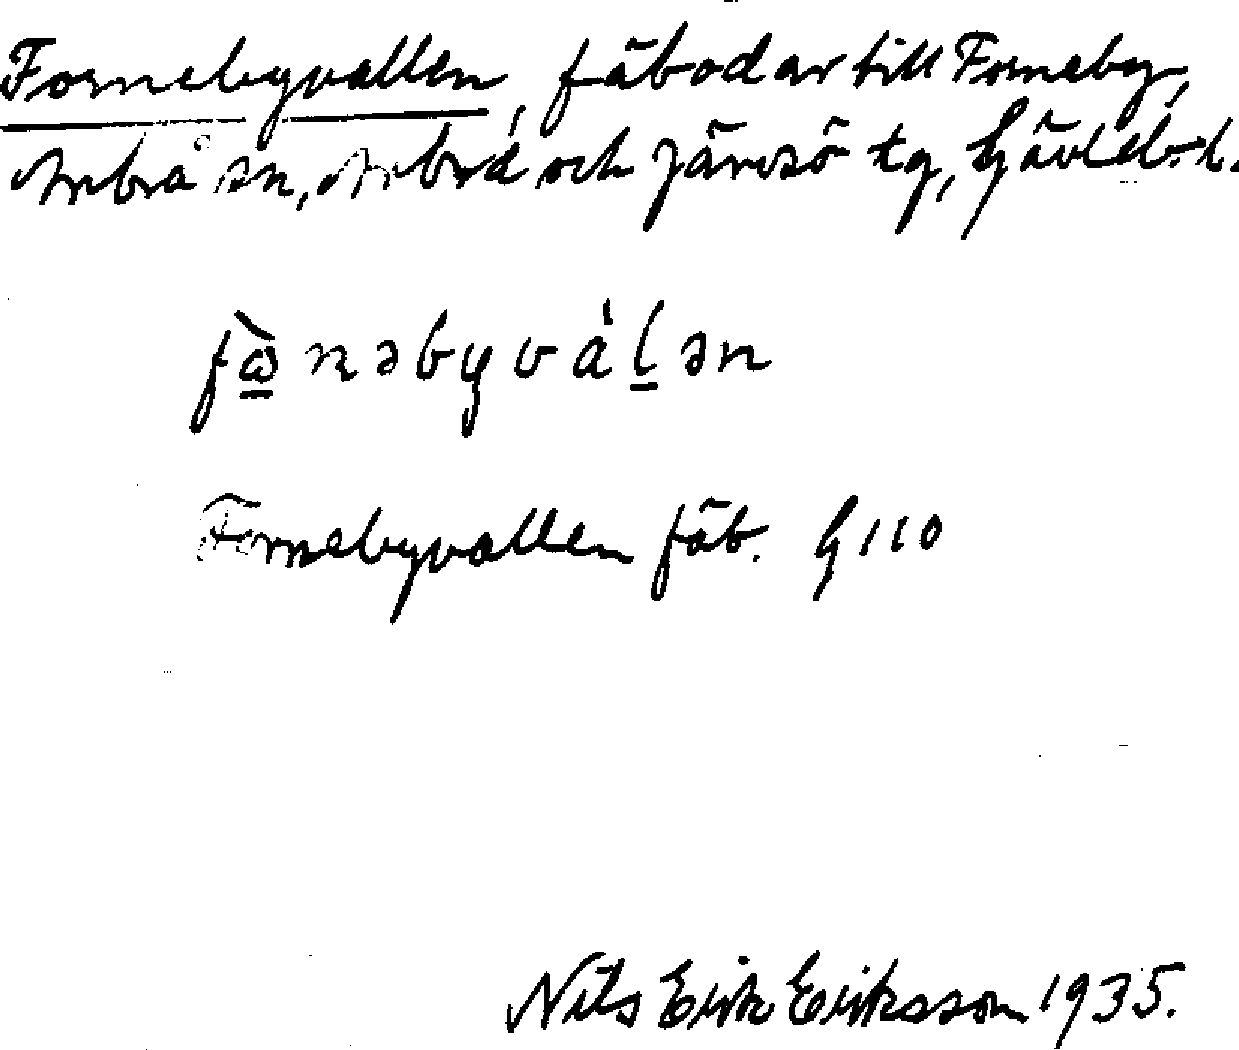 Fornebyvallen, fäbodar till Forneby,
Arbrå sn, Arbrå och Järvsö tg, Gävleb. l.
fɷ̀nəbyválən
Fornebyvallen fäb. G 110
Nils Erik Eriksson 1935.